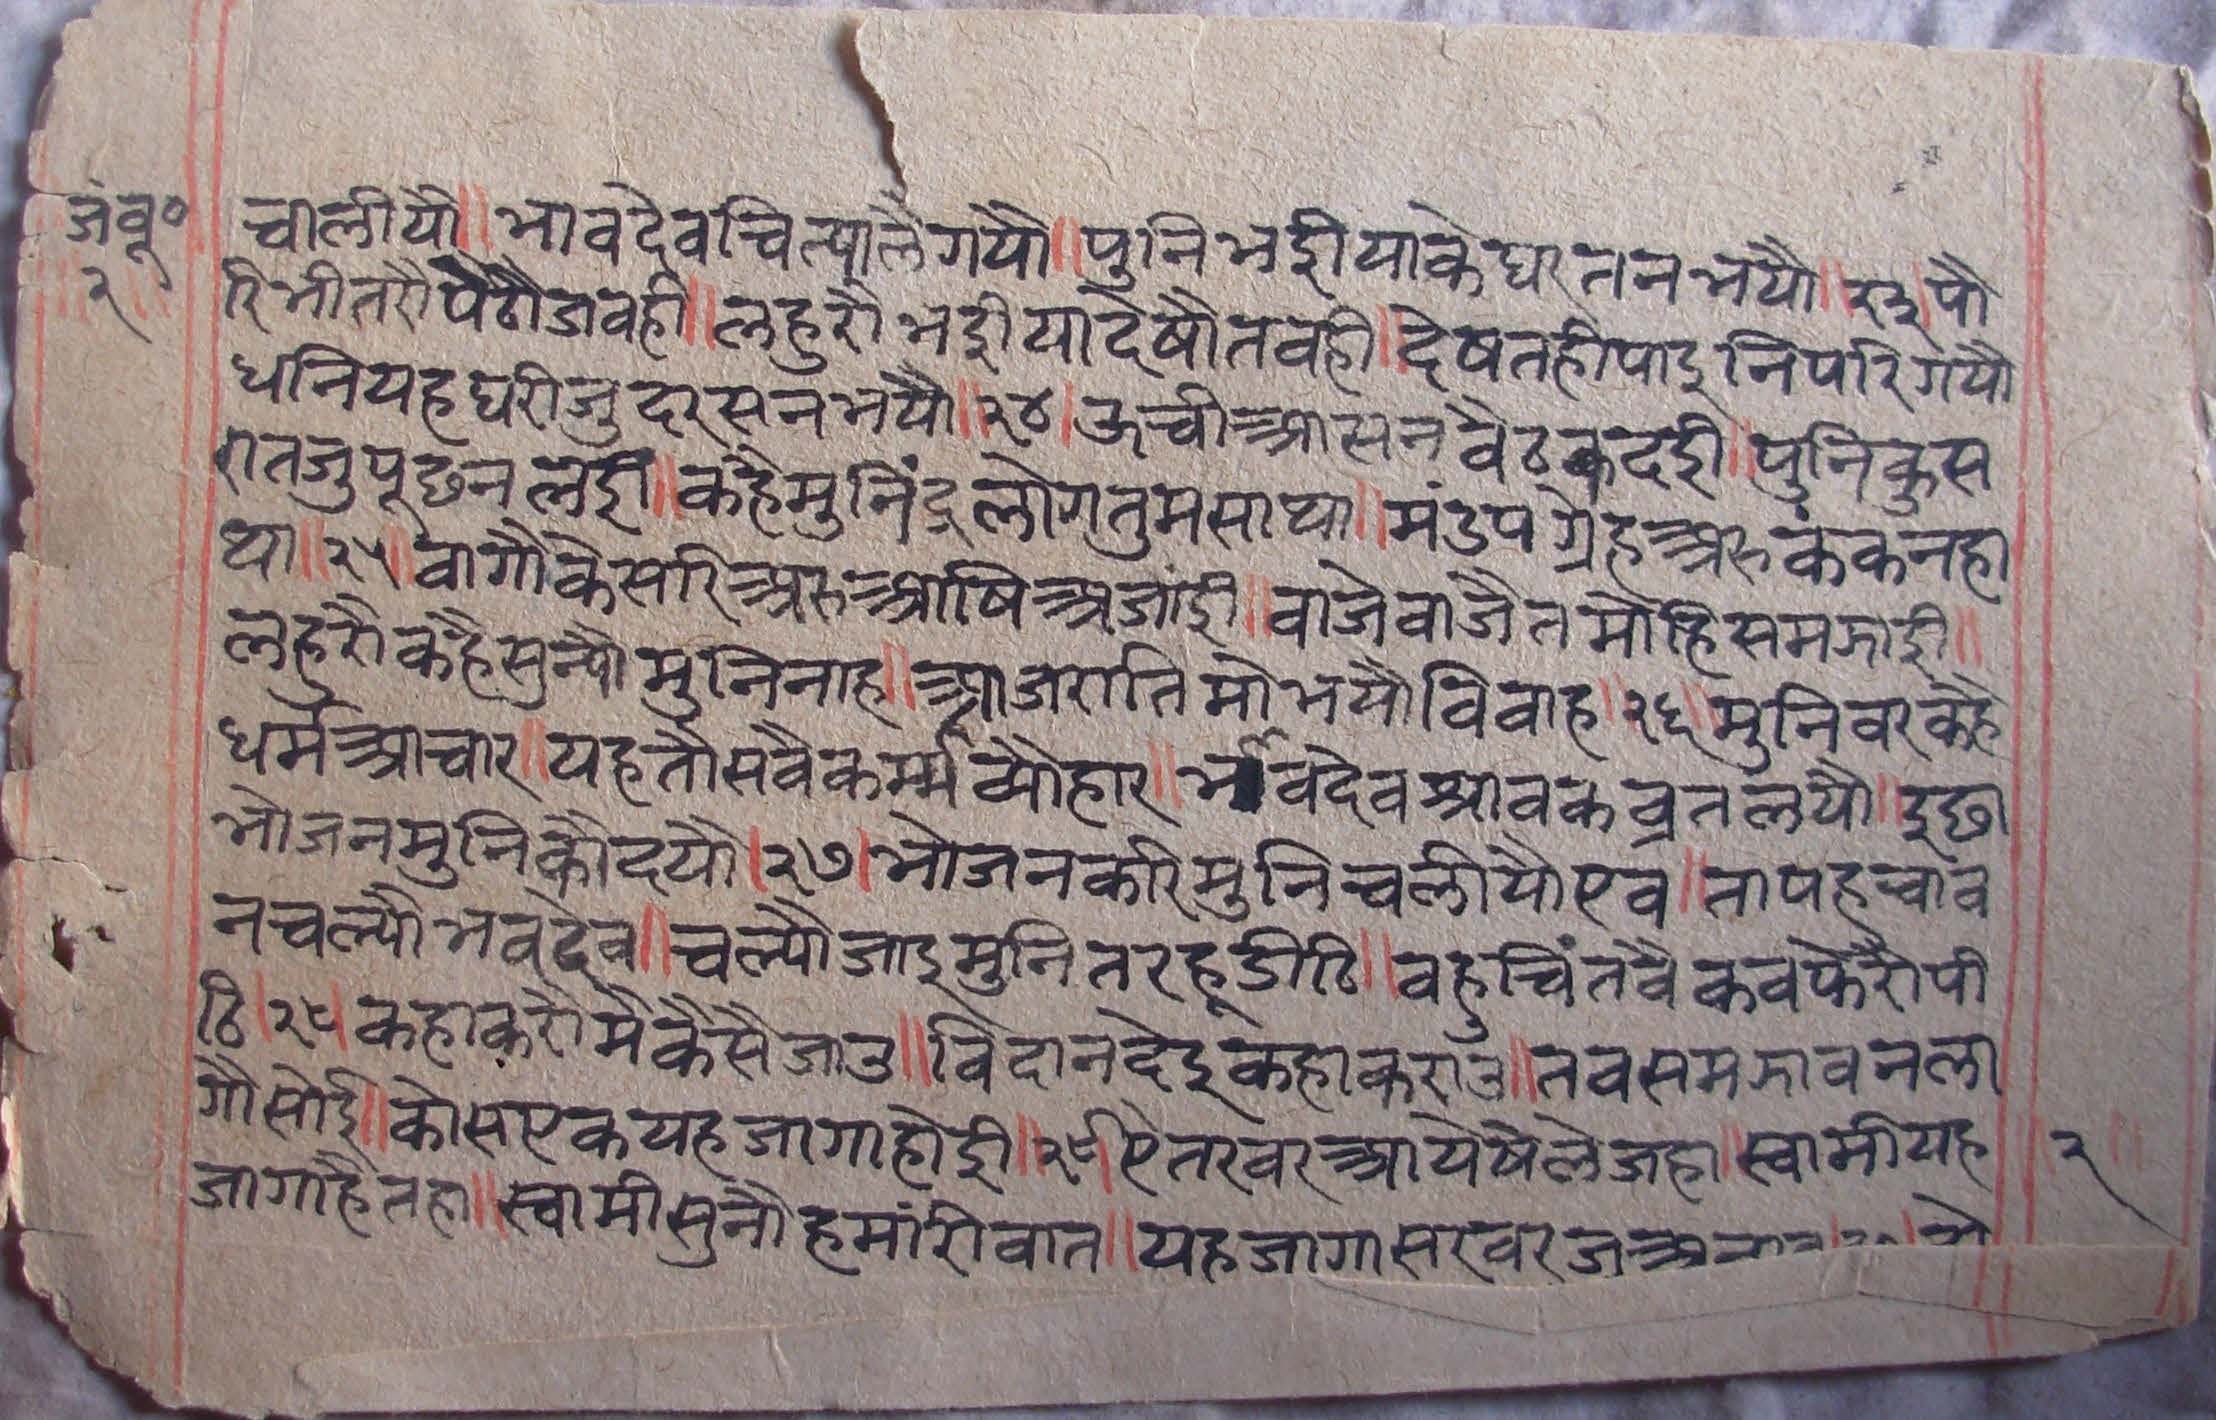 जंवू० चालीयौ॥ भावदेव चित्यालै गयौ॥ पुनि भईयाके घर तन भयौ॥ २३। पौ
२ रि भीतरौ पैठौ जवही॥ लहुरौ भईया देषौ तवही॥ देषतही पाइनि परि गयौ
धनि यह घरी जु दरसन भयौ॥ २४। ऊची आसन वैठक दई॥ पुनि कुस
रात जु पूछन लई॥ कहै मुनिंद्र लोग तुम साथा॥ मंडप ग्रेह अरु कंकन हा
था॥ २५॥ वागौ केसरि अरु आषि अजांई॥ वाजे वाजै त मोहि समझाई॥
लहुरौ कहै सुन्यौ मुनिनाह॥ आज राति मो भयौ विवाह॥ २६॥ मुनिवर कहै
धर्म आचार॥ यह तौ सवै कर्म्म व्यौहार॥ भवदेव श्रावक व्रत लयौ॥ इछा
भोजन मुनि कौ दयौ। २७। भोजन करि मुनि चलीयौ एव॥ ता पहचाव
न चल्यौ भवदेव॥ चल्यौ जाइ मुनि तरहू डीठि॥ वहु चिंतवै कव फेरौ पी
ठि। २८। कहा करौ मै कैसै जाउ॥ विदा न देइ कहा कराउ॥ तव समझावन ला
गौ सोई॥ कोस एक यह जागा होई॥ २९। ऐ तरवर आये षेले जहा॥ स्वामी यह २
जागा है तहा॥ स्वामी सुनौ हमांरी वात॥ यह जागा सरवर